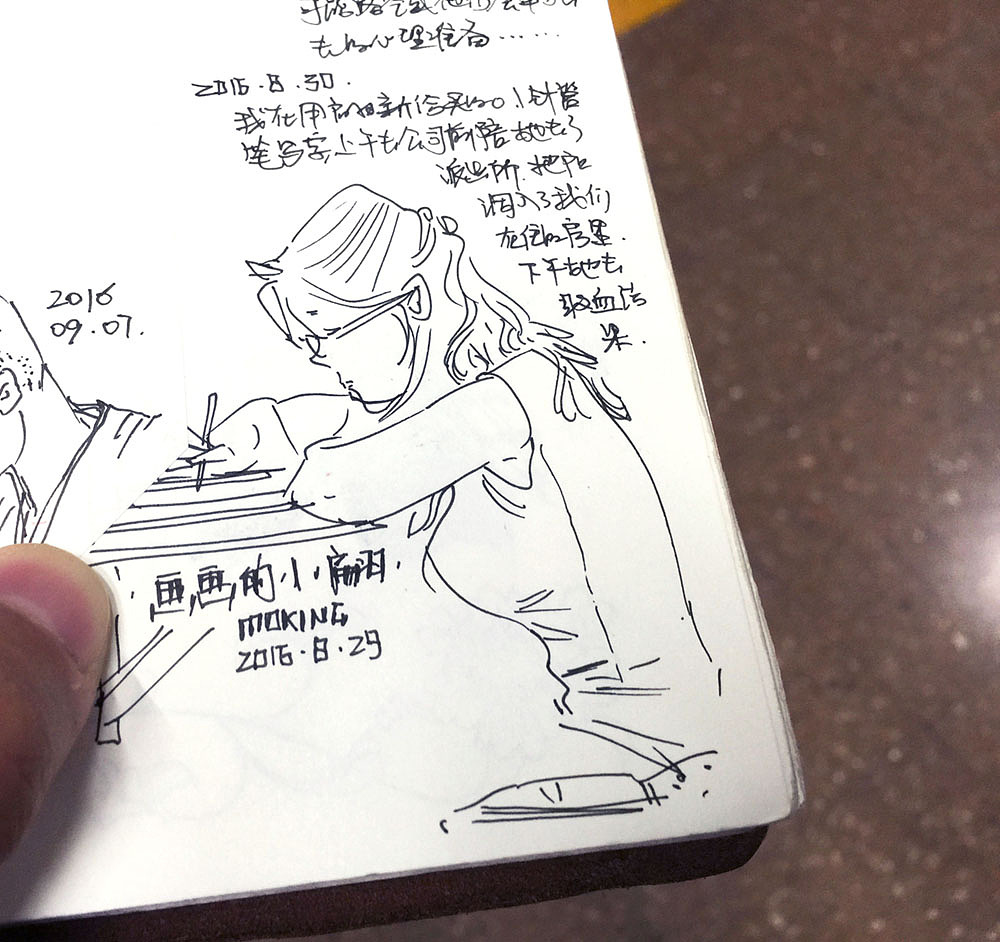 也好心理准备……
2016.8.30.
我在用 新给我的小针管
笔写字上午去公司前陪她去了
派出所.把户
调入了我们
在住的房里.
下午她去
取血污
果.
2016
09.07.
画画的小翩.
MOKING
2016.8.29